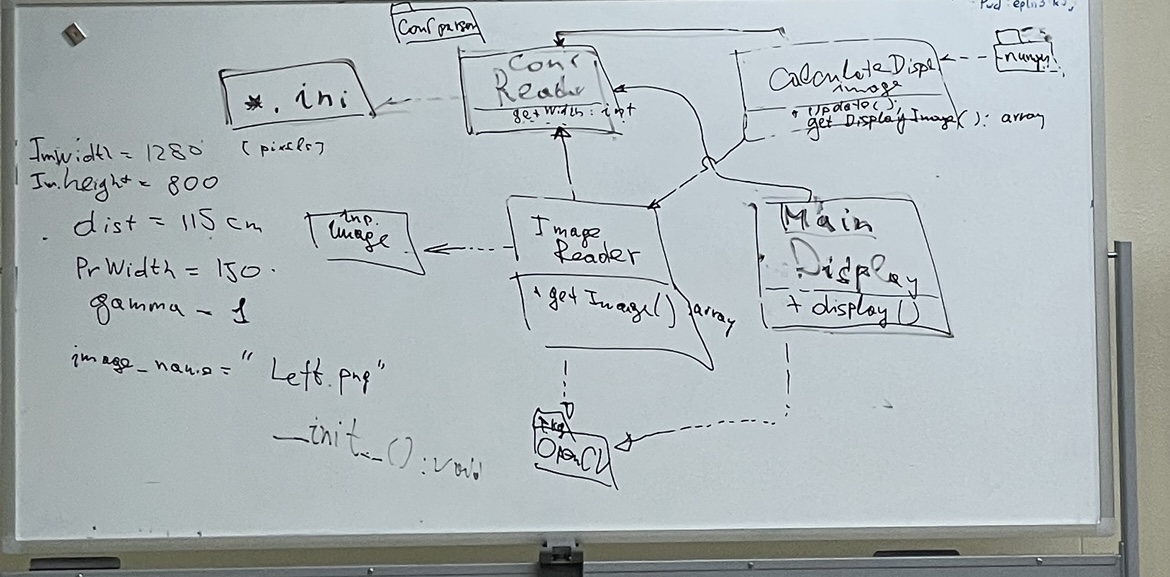 ConfParser
*.ini
Conf
Reader
getWidth: int
CalculateDispl
image
+ Update();
getDisplayImage(): array
ImWidth = 1280 (pixels)
Im.height = 800
dist = 115 cm
PrWidth = 150.
gamma - 1
image_name = "Left.png"
__init__(): void
Inp.
Image
Image
Reader
+ getImage() array
Main
Display
+ display()
OpenCV